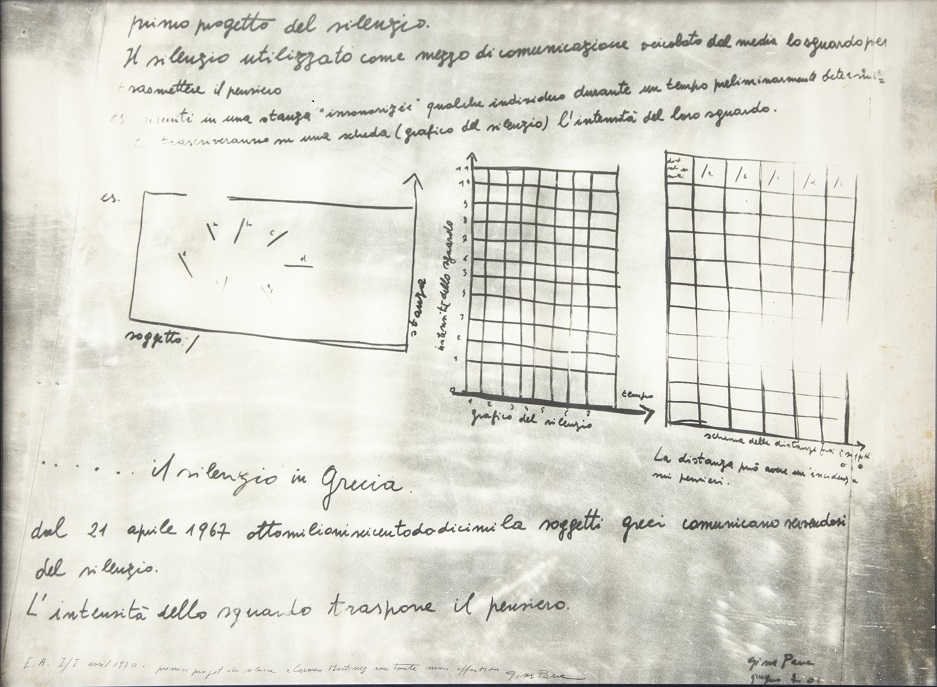 primo progetto del silenzio.
Il silenzio utilizzato come mezzo di comunicazione veicolato dal media lo sguardo per
trasmettere il pensiero
es riuniti in una stanza "insonorizié" qualche individuo durante un tempo preliminarmente
trascriveranno su una scheda (grafico del silenzio) l'intensità del loro sguardo.
es.
d
stanza
soggetto /
intensità dello sguardo
11
10
9
8
7
6
5
3
2
1
0
1 2 3
tempo
grafico del silenzio
schema delle distanze
La distanza può avere un'incidenza
sui pensieri.
...... il silenzio in Grecia.
dal 21 aprile 1967 ottomilioniseicentododicimila soggetti greci comunicano servendosi
del silenzio.
L'intensità dello sguardo traspone il pensiero.
E.A. I/I avril 1970. premier projet du silence a Carmen Martinez en toute mon affection Gina Pane
Gina Pane
giugno